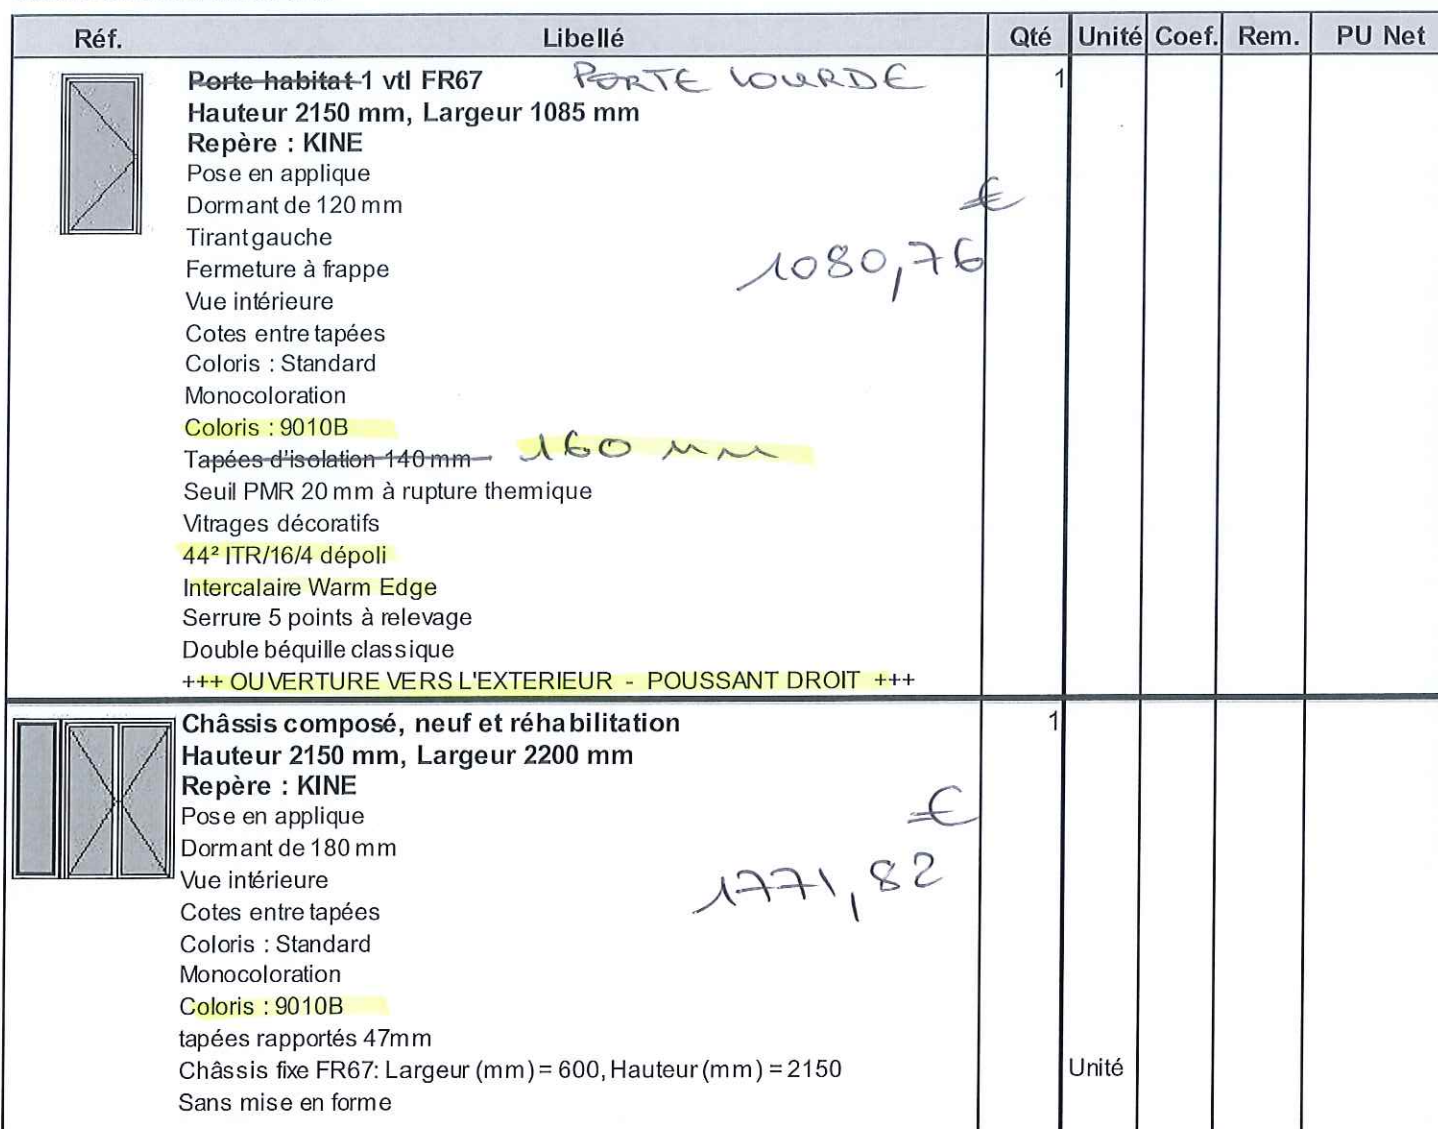 Réf. Libellé Qté Unité Coef. Rem. PU Net
Porte habitat 1 vtl FR67 PORTE LOURDE 1
Hauteur 2150 mm, Largeur 1085 mm
Repère : KINE
Pose en applique
Dormant de 120 mm
€
Tirant gauche
1080,76
Fermeture à frappe
Vue intérieure
Cotes entre tapées
Coloris : Standard
Monocoloration
Coloris : 9010B
Tapées d'isolation 140 mm 160 mm
Seuil PMR 20 mm à rupture thermique
Vitrages décoratifs
44² ITR/16/4 dépoli
Intercalaire Warm Edge
Serrure 5 points à relevage
Double béquille classique
+++ OUVERTURE VERS L'EXTERIEUR - POUSSANT DROIT +++
Châssis composé, neuf et réhabilitation 1
Hauteur 2150 mm, Largeur 2200 mm
Repère : KINE
Pose en applique €
Dormant de 180 mm
Vue intérieure 1771,82
Cotes entre tapées
Coloris : Standard
Monocoloration
Coloris : 9010B
tapées rapportés 47mm
Châssis fixe FR67: Largeur (mm) = 600, Hauteur (mm) = 2150 Unité
Sans mise en forme